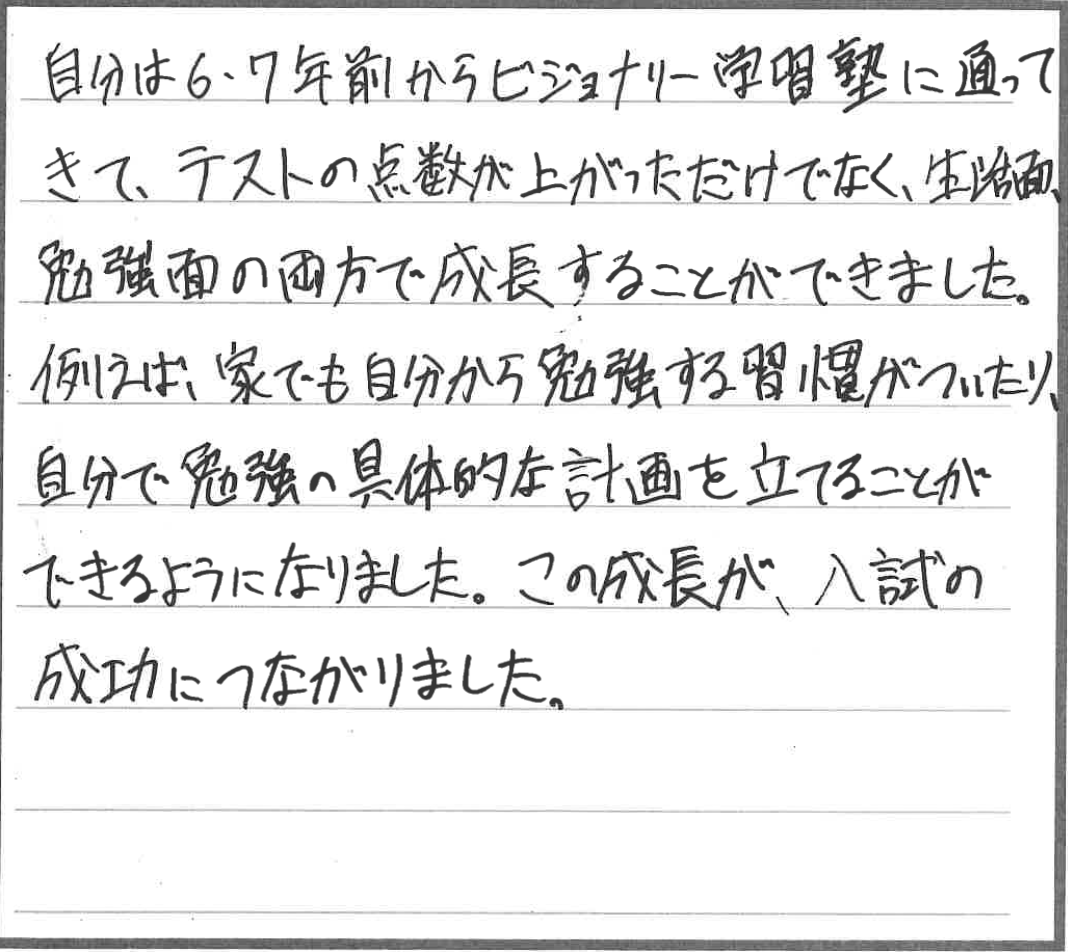 自分は6・7年前からビジョナリー学習塾に通って
きて、テストの点数が上がっただけでなく、生活面、
勉強面の両方で成長することができました。
例えば、家でも自分から勉強する習慣がついたり、
自分で勉強の具体的な計画を立てることが
できるようになりました。この成長が、入試の
成功につながりました。